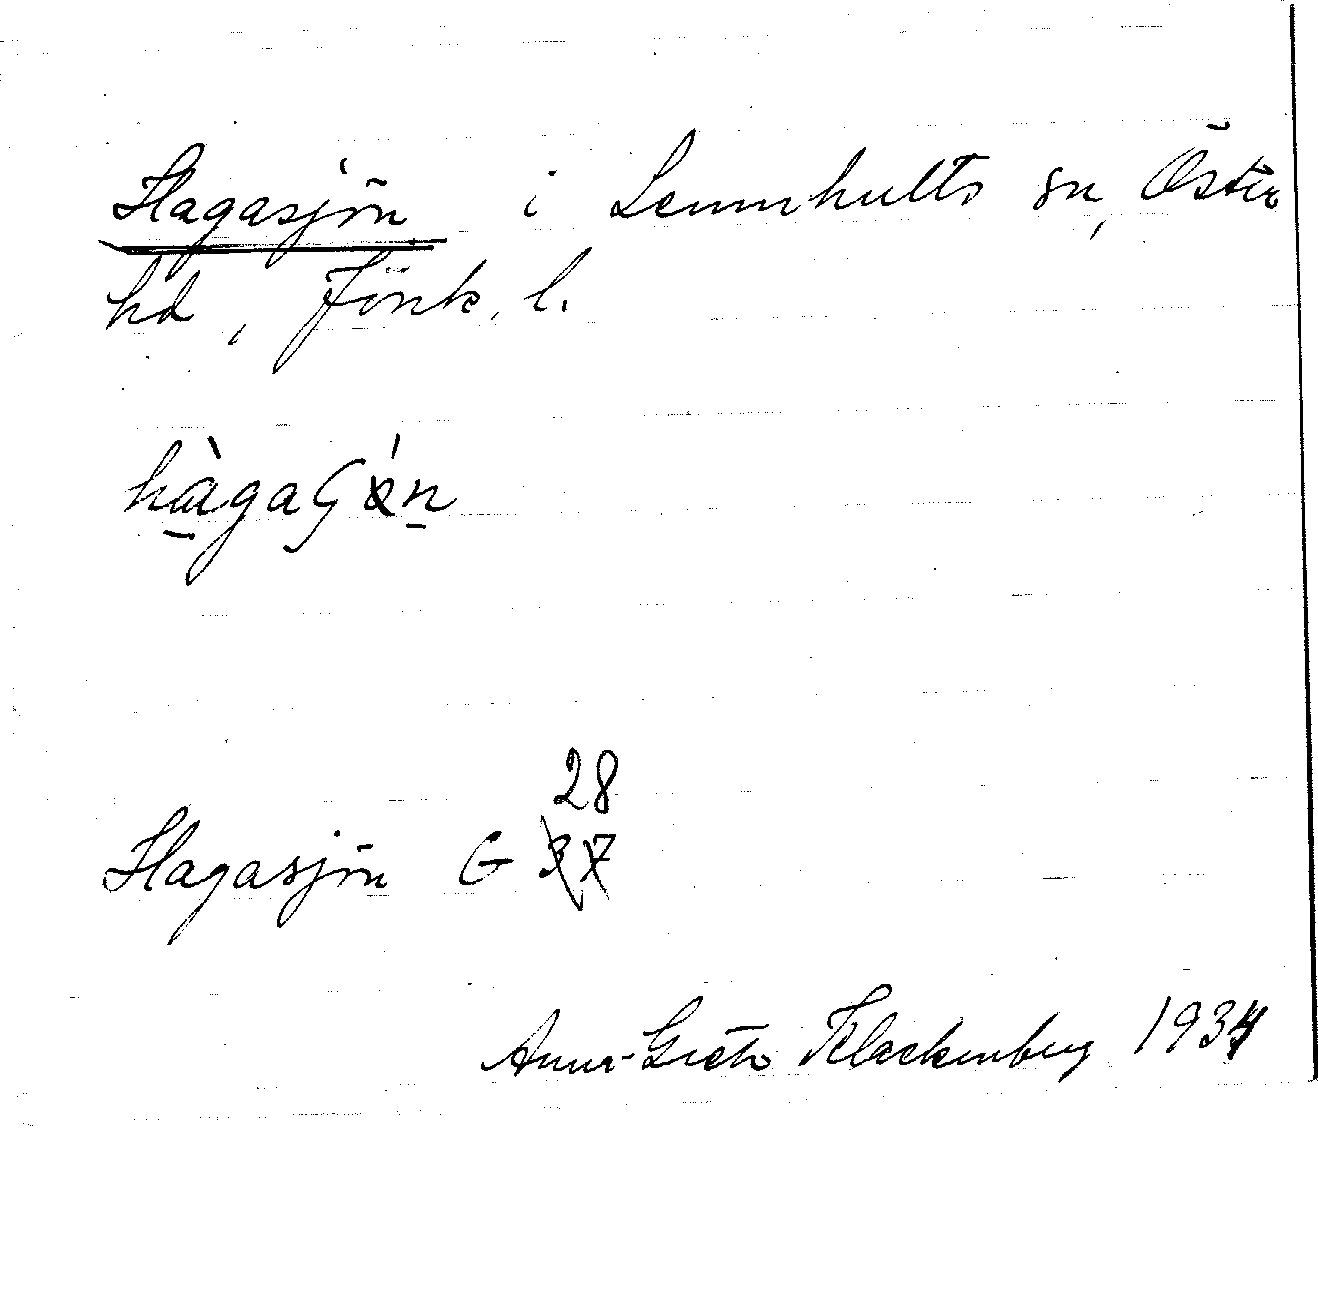 Hagasjön i Lemnhults sn, Östra
hd, Jönk. l.
hàgaʃǿn
28
Hagasjön G 37
Anna-Greta Klackenberg 1934